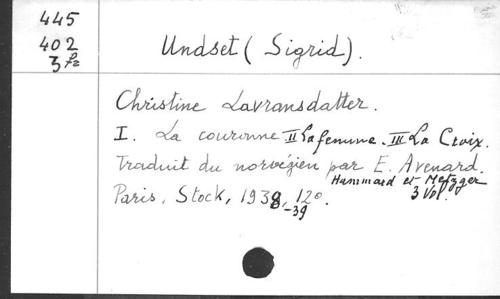 445
402
3
Undset (Sigrid).
Christine Lavransdatter.
I. La couronne II La femme. III La Croix.
Traduit du norvégien par E. Avenard.
Hammard et Metzger
Paris, Stock, 1938, 12o. 3 Vol.
-39